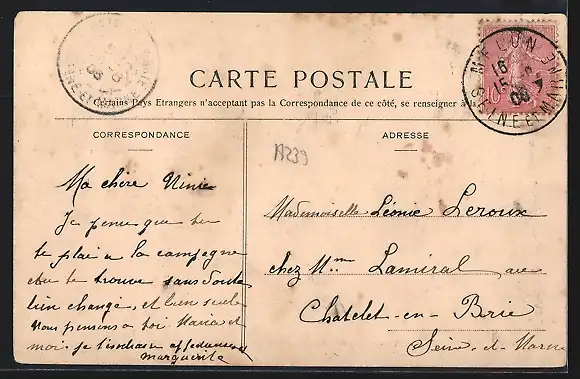 CARTE POSTALE
Certains Pays Etrangers n'acceptant pas la Correspondance de ce côté, se renseigner à la
CORRESPONDANCE
ADRESSE
MELUN
SEINE ET MARNE
16
06
10
A239
Ma chère Ninie
Je pense que tu
te plai a la campagne
tu te trouve sans doute
bien changé, et bien seule
nous pensons a toi Maria et
moi. je t'embrasse
Marguerite
Mademoiselle Léonie Leroux
chez Mme Lamiral
Chatelet-en-Brie
Seine-et-Marne